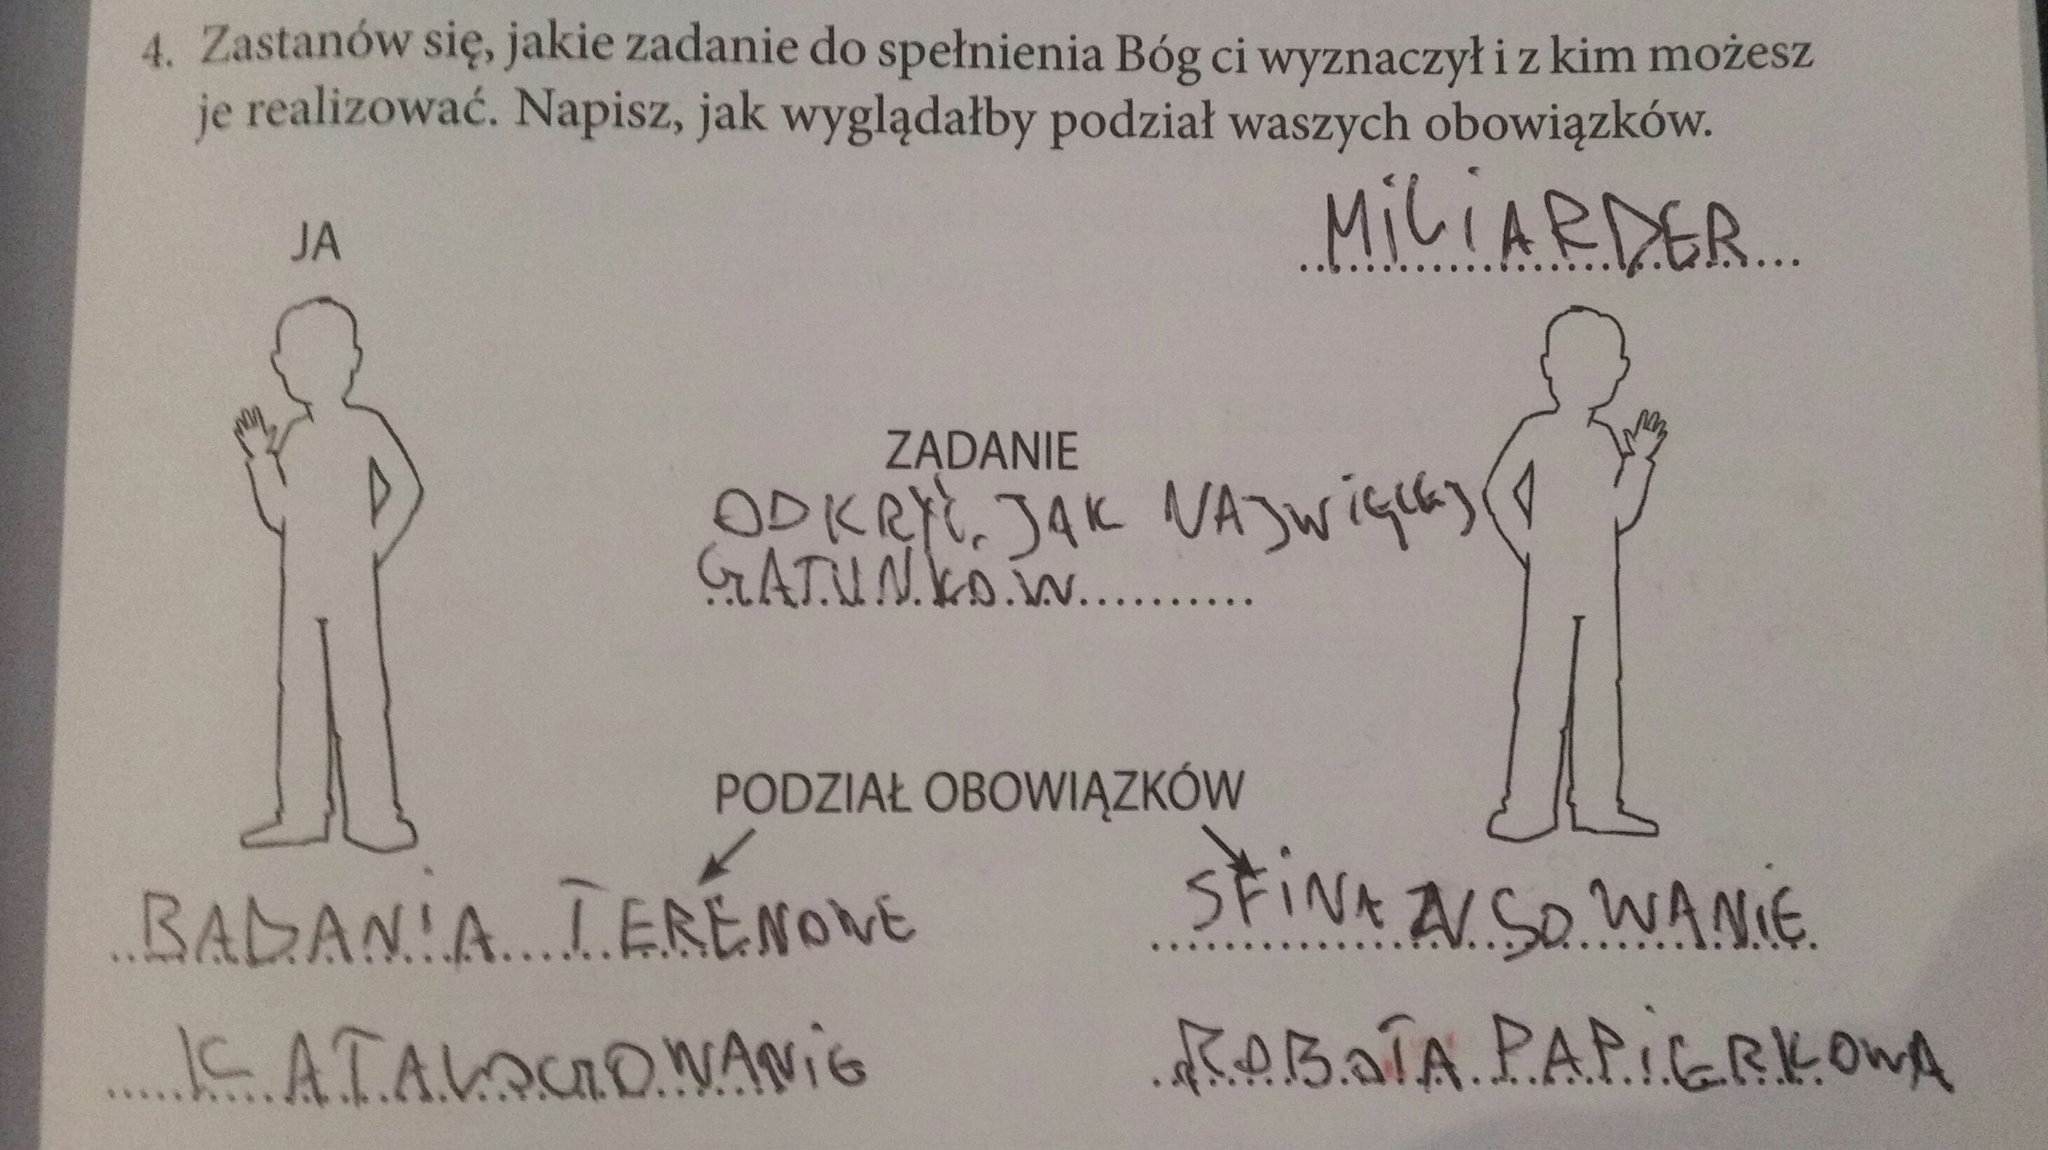 4. Zastanów się, jakie zadanie do spełnienia Bóg ci wyznaczył i z kim możesz
je realizować. Napisz, jak wyglądałby podział waszych obowiązków.
MILIARDER
JA
ZADANIE
ODKRYĆ JAK NAJWIĘCEJ
GATUNKOW
PODZIAŁ OBOWIĄZKÓW
BADANIA TERENOWE
SFINANSOWANIE
KATALOGOWANIE
ROBOTA PAPIERKOWA